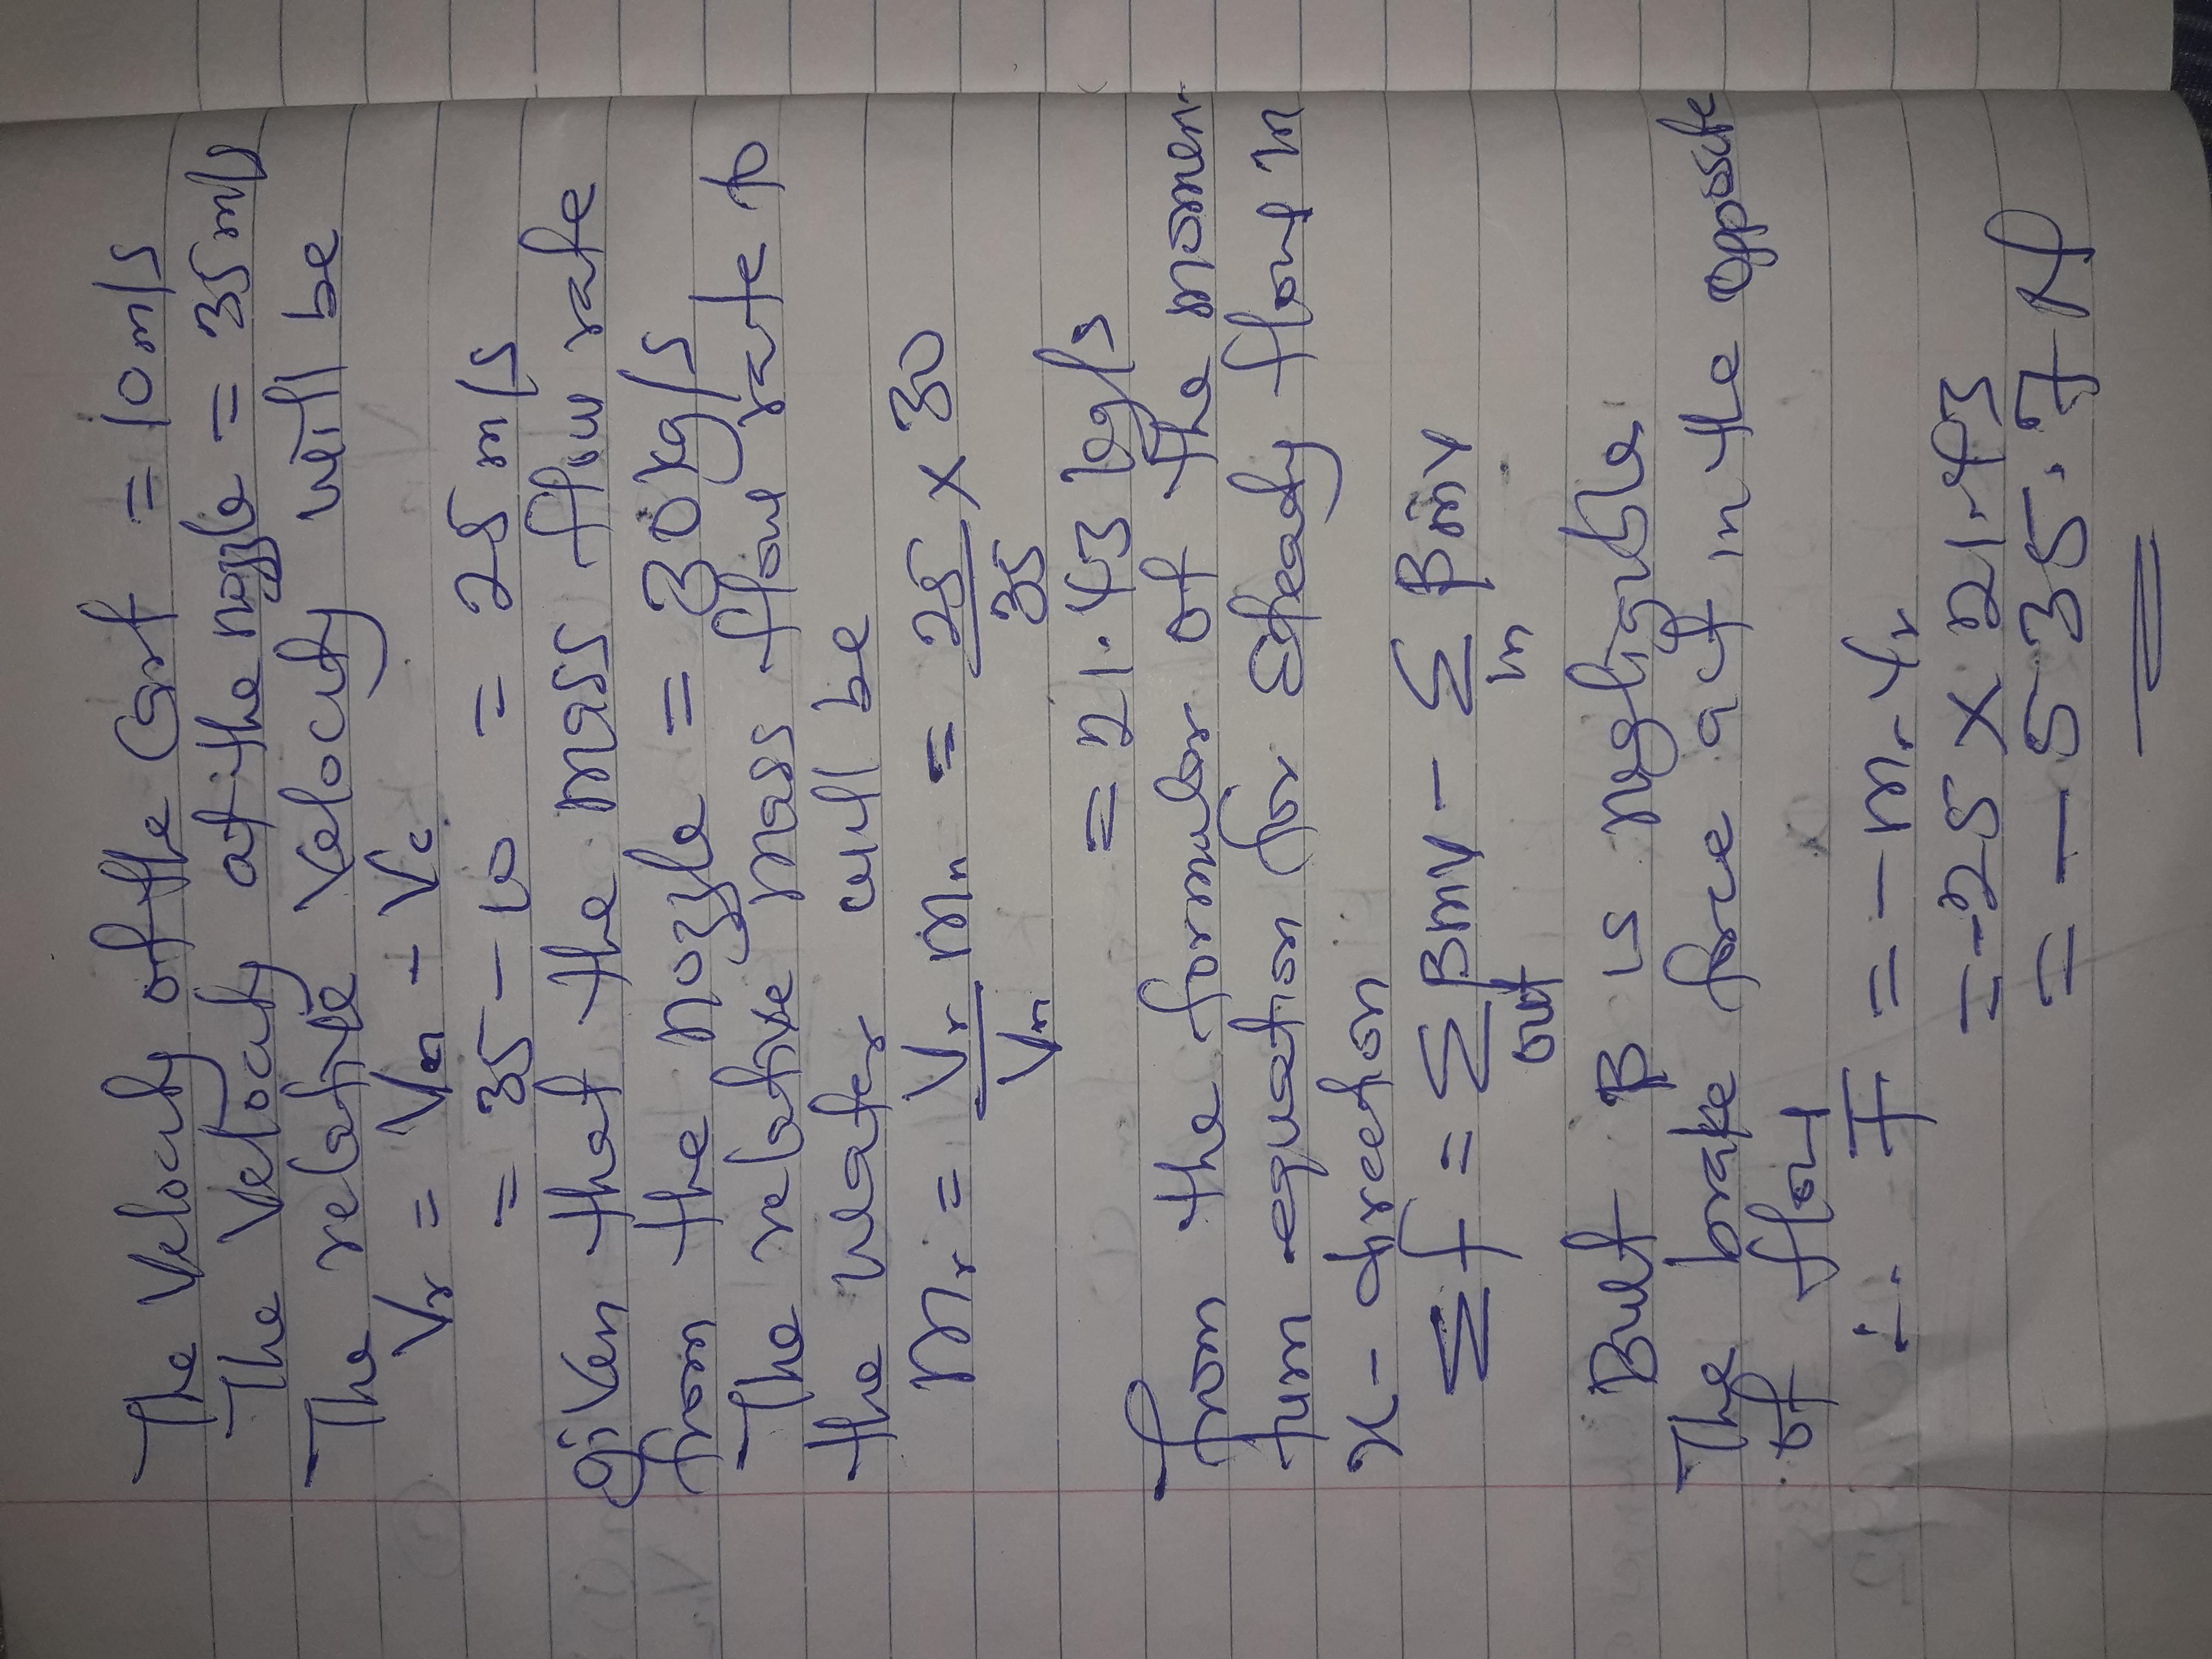 The Velocity of the Cart = 10m/s
The Velocity at the nozzle = 35m/s
The relative Velocity will be
Vr = Vn - Vc
= 35 - 10 = 25m/s
given that the mass flow rate
from the nozzle = 30kg/s
The relative mass flow rate to
the water will be
mr = Vr/Vn mn = 25/35 x 30
= 21.43 kg/s
from the formular of the momen-
tum equation for steady flow in
x - direction
ΣF = Σout βmv - Σin βmv
But β is negligigle
The brake force act in the opposite
of flow
∴ F = -mr Vr
= -25 x 21.43
= -535.7N